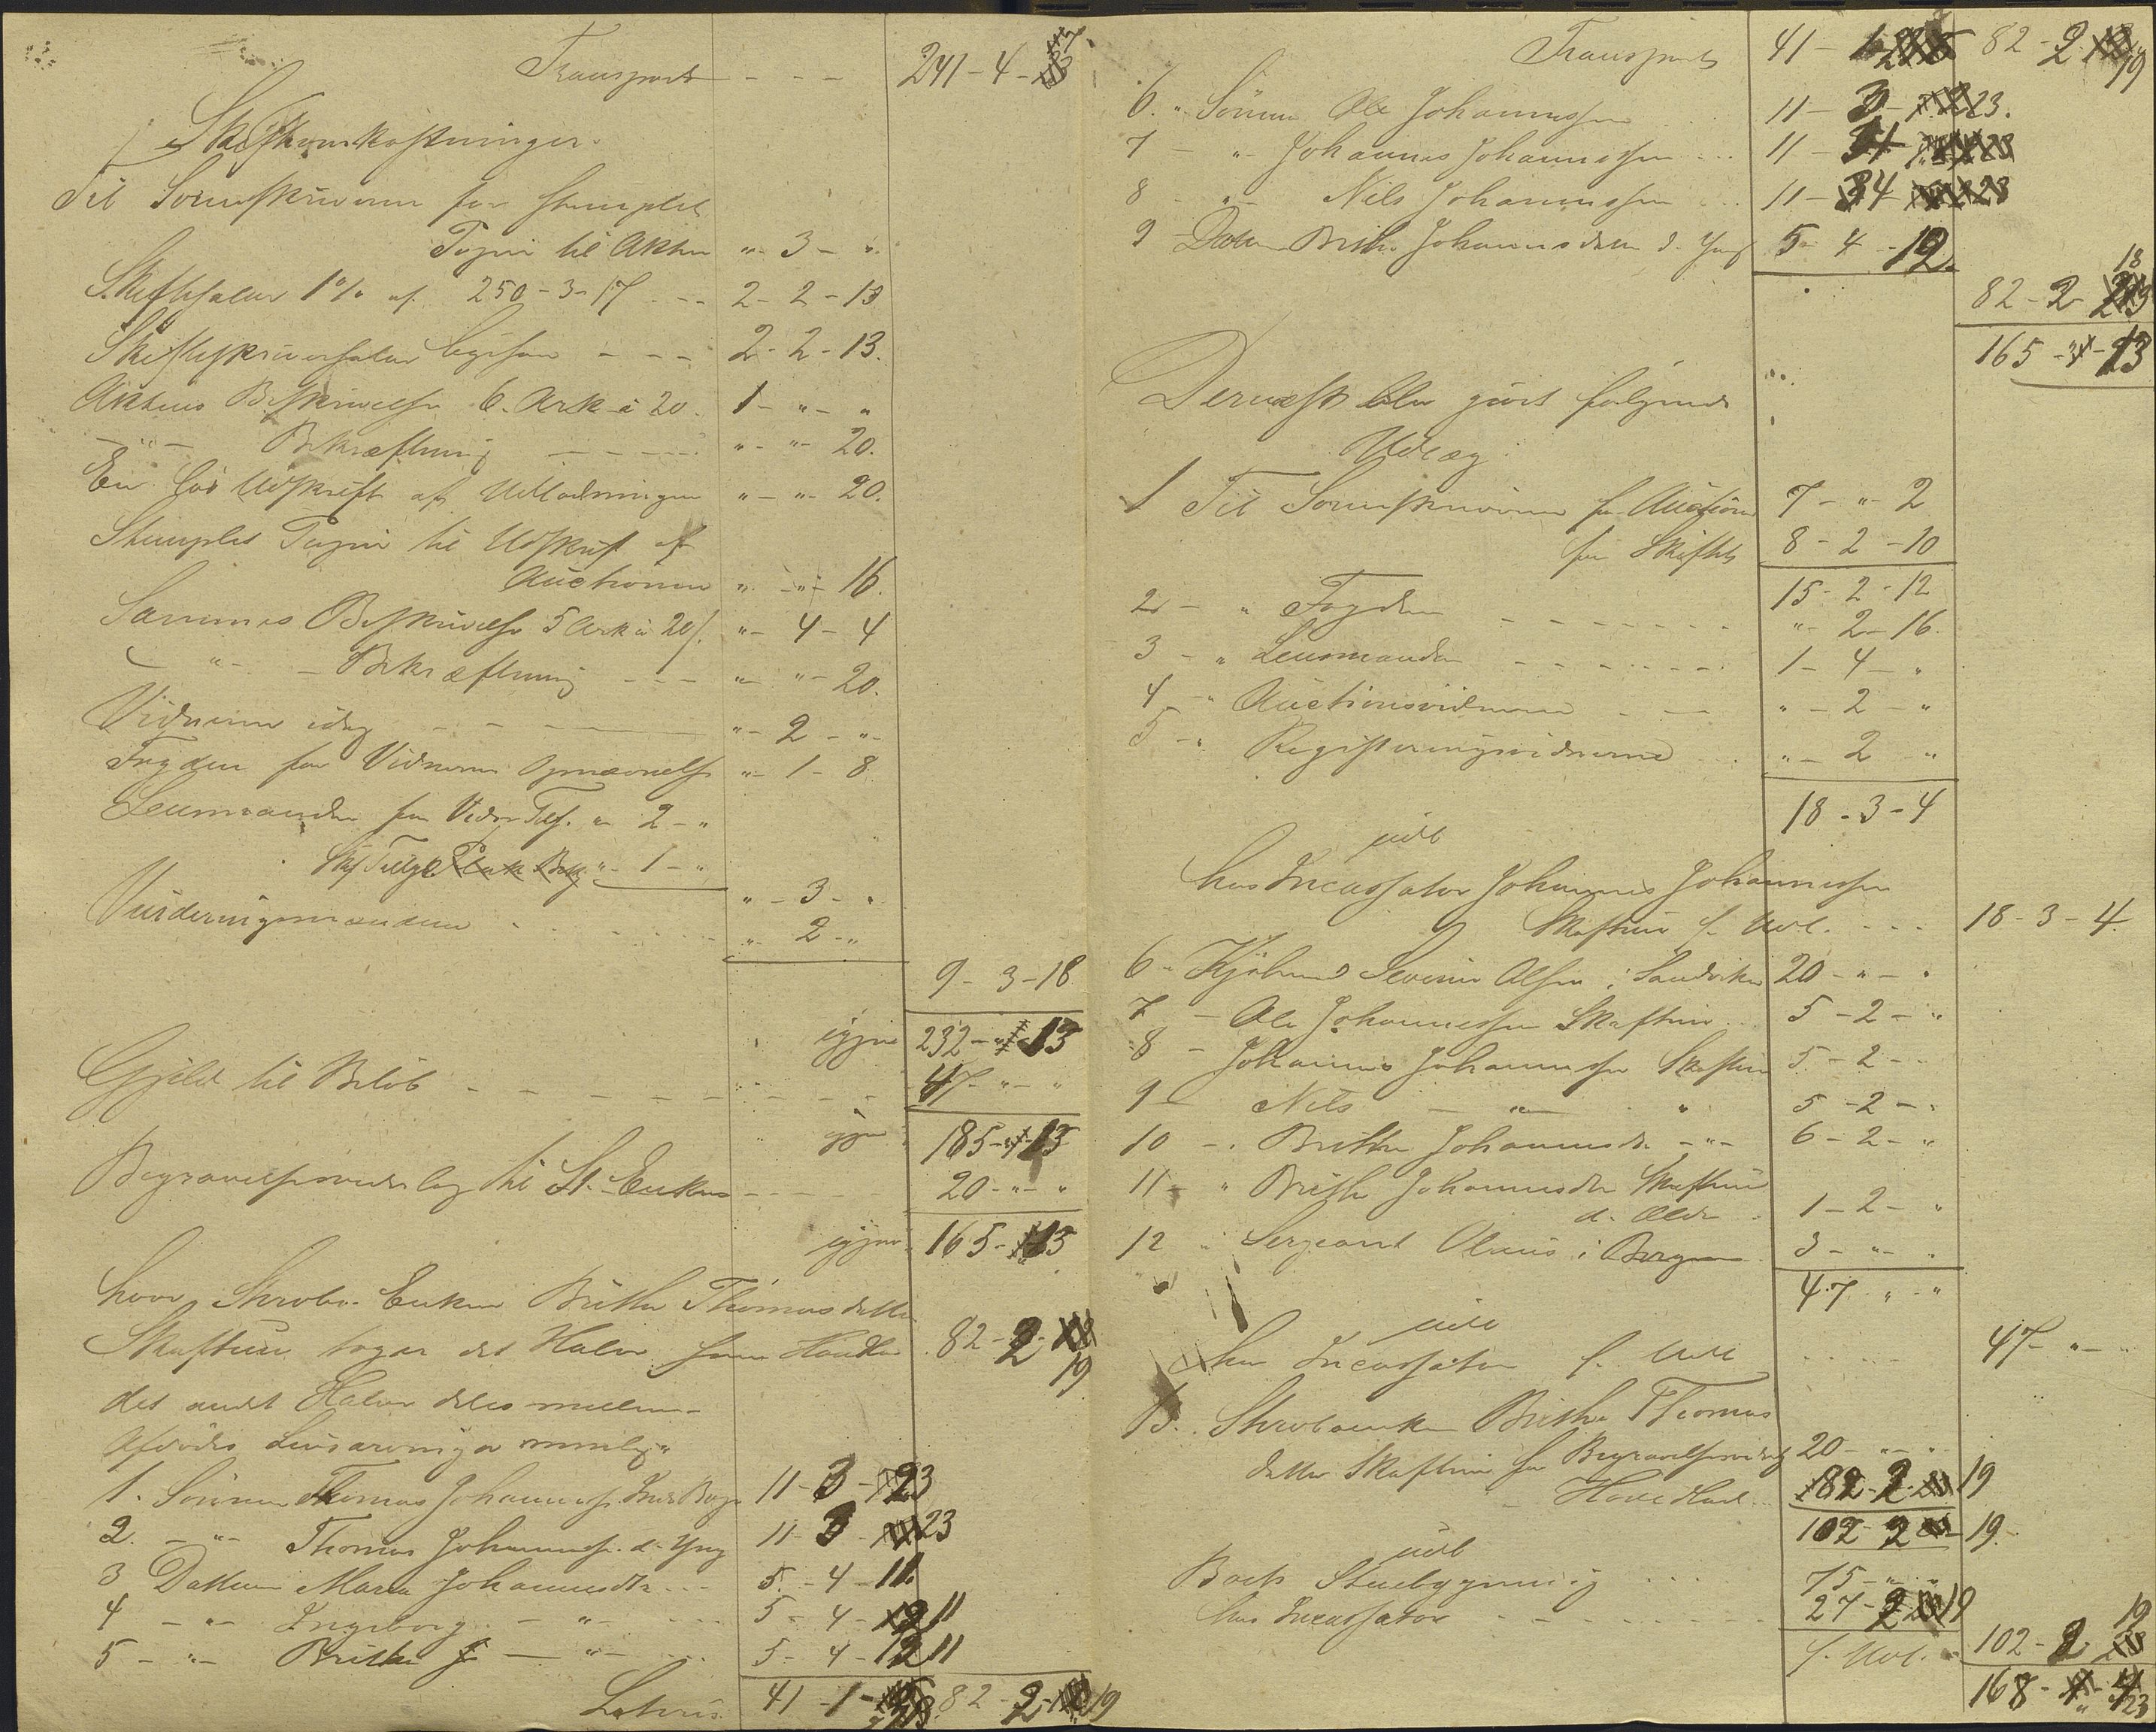 Transport - - - 241-4-7
Skifteomkostninger.
Til Sorenskriveren for stemplet
Papir til Akten " 3 - "
Skiftesalær 1% af 250-3-17 - - - 2-2-13
Skifteskriversalær ligesaa - - - 2-2-13.
Aktens Beskrivelse 6. Ark à 20. 1 - " - "
- " - Bekræftning - - - - - " - " 20.
En løs Udskrift af Udlodningen " - " 20.
Stemplet Papir til Udskrift af
Auctionen " - " 16.
Sammes Beskrivelse 5 Ark à 20 " - 4 - 4
" - - Bekræftning - - - " - " - 20.
Vidnerne idag - - - " - 2 - "
Fogden for Vidners Opnævnelse " - 1 - 8
Lensmanden for Vidne Tils. " 2 - "
1 - "
" - 3 - "
Vurderingsmændene " - 2 - "
9 - 3 - 18
igjen 232 - " - 13
Gjeld til Beløb - - - - - - 47 - " - "
igjen 185 - " - 13
Begravelsesvederlag til St. Enken - - - 20 - " - "
igjen 165 - " - 13
hvor Stervbo Enken Brithe Thomasdatter
Skaftun tager det Halve som Hovedlod 82 - 2 - 19
det andet Halve deles mellem
Afdødes Livsarvinger nemlig:
1. Sønnen Thomas Johanness. 11 - 3 - 23
2. - " - Thomas Johanness. d. Yng 11 - 3 - 23
3 Datteren Marta Johannesdtr. - - - 5 - 4 - 11
4 - " - Ingeborg - " - 5 - 4 - 11
5 - " - Brithe - " - 5 - 4 - 11
Latus 41 - 1 - 82 - 2 - 19
Transport 41 - 1 82 - 2 - 19
6. " Sønnen Ole Johannessen 11 - 3 - 23.
7 - " - Johannes Johannessen ... 11 - 4
8 - " - Nils Johannessen ... 11 - 4
9 - Datter Brithe Johannesdatter d. Yng 5 - 4 - 12.
82 - 2 - 18
165 - " - 13
Dernæst blev gjort følgende
Udlæg
1 Til Sorenskriveren for Auctionen 7 - " - 2
for Skiftet 8 - 2 - 10
15 - 2 - 12
2 - " Fogden - - - - - - " - 2 - 16.
3 - " Lensmanden - - - - - - 1 - 4 - "
4 - " Auctionsvidnerne - - " - 2 - "
5 - " Registreringsvidnerne " - 2 - "
18 - 3 - 4
udl
hos Incassator Johannes Johannessen
Skaftun f. Udl. - - - 18 - 3 - 4.
6 - Kjøbmand Severin Olsen i Sandviken 20 - " - "
7 - Ole Johannessen Skaftun 5 - 2 - "
8 - Johannes Johannessen Skaftun 5 - 2 - "
9 - Nils - " - " 5 - 2 - "
10 - " Brithe Johannesdtr - " - 6 - 2 - "
11 - " Brithe Johannesdtr Skaftun
d. Ældre 1 - 2 - "
12 " Sergeant Olaus i Bergen 3 - " - "
47 - " - "
udl
hos Incassator f. Udl 47 - " - "
13. Stervboenken Brithe Thomas
datter Skaftun for Begravelsesvederlag 20 - " - "
- Hovedlod... 82 - 2 - 19
102 - 2 - 19.
udl
Boets Stuebygning ... 75 - " - "
hos Incassator - - - - - - 27 - 2 - 19
f. Udl. 102 - 2 - 19
168 - " - 23